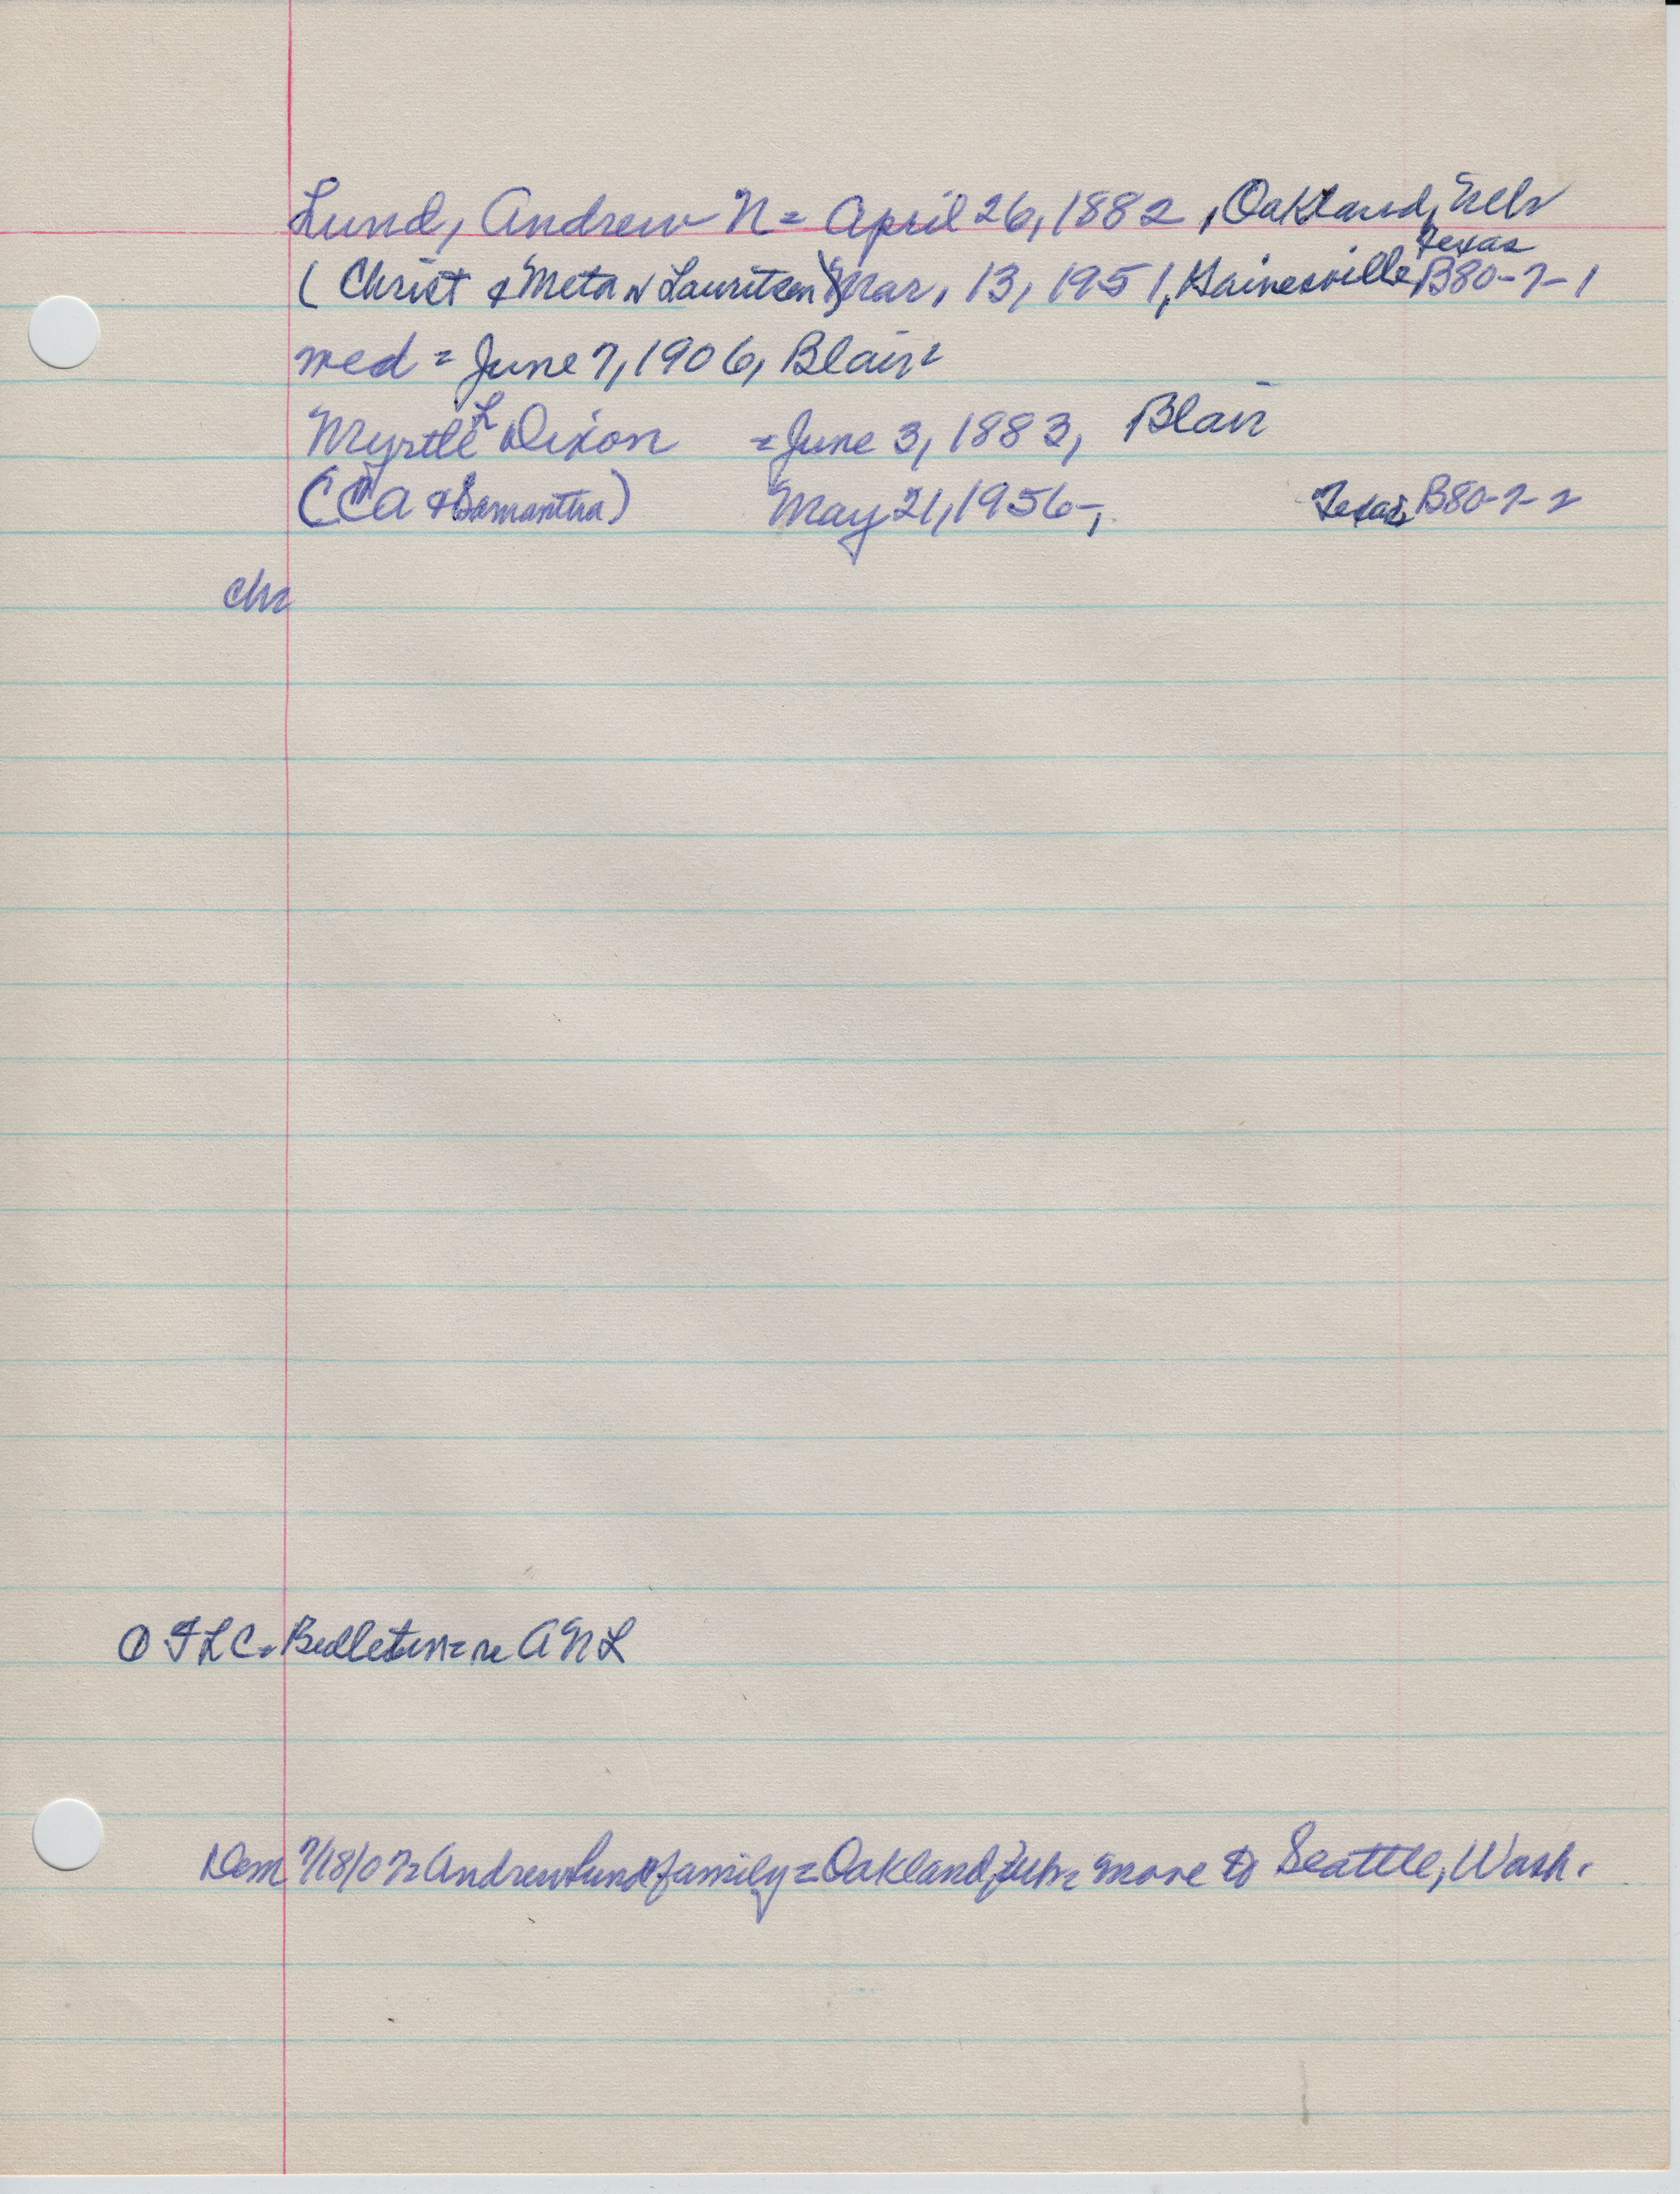 Lund, Andrew N = April 26, 1882, Oakland, Nebr
(Christ & Meta N Lauritsen) Mar, 13, 1951, Gainesville Texas B80-7-1
wed = June 7, 1906, Blair =
Myrtle L Dixon = June 3, 1883, Blair
(C A & Samantha) May 21, 1956-, Texas B80-7-2
ch=
FLC = Bulleten = re A N L
Dem 7/18/07 = Andrew Lund & family = Oakland, move to Seattle, Wash.